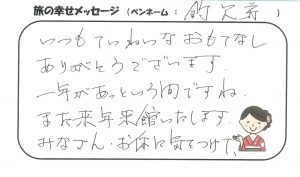 旅の幸せメッセージ（ペンネーム：釣欠斎）
いつもていねいなおもてなし
ありがとうございます．
一年があっという間ですね．
また来年来館いたします．
みなさん、お体に気をつけて、